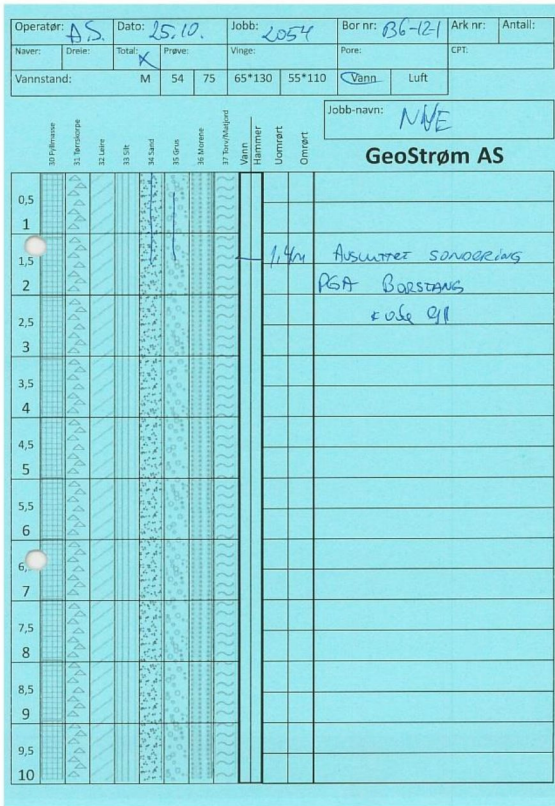 Operatør: A.S. Dato: 25.10. Jobb: 2054 Bor nr: B6-12-1 Ark nr: Antall:
Naver: Dreie: Total: X Prøve: Vinge: Pore: CPT:
Vannstand: M 54 75 65*130 55*110 Vann Luft
Jobb-navn: NYE
GeoStrøm AS
30 Fyllmasse 31 Tørrskorpe 32 Leire 33 Silt 34 Sand 35 Grus 36 Morene 37 Torv/Matjord Vann Hammer Uomrørt Omrørt
0,5
1
1,5 1,4m AVSLUTTET SONDERING
2 PGA BORSTANG
2,5
3
3,5
4
4,5
5
5,5
6
6,
7
7,5
8
8,5
9
9,5
10